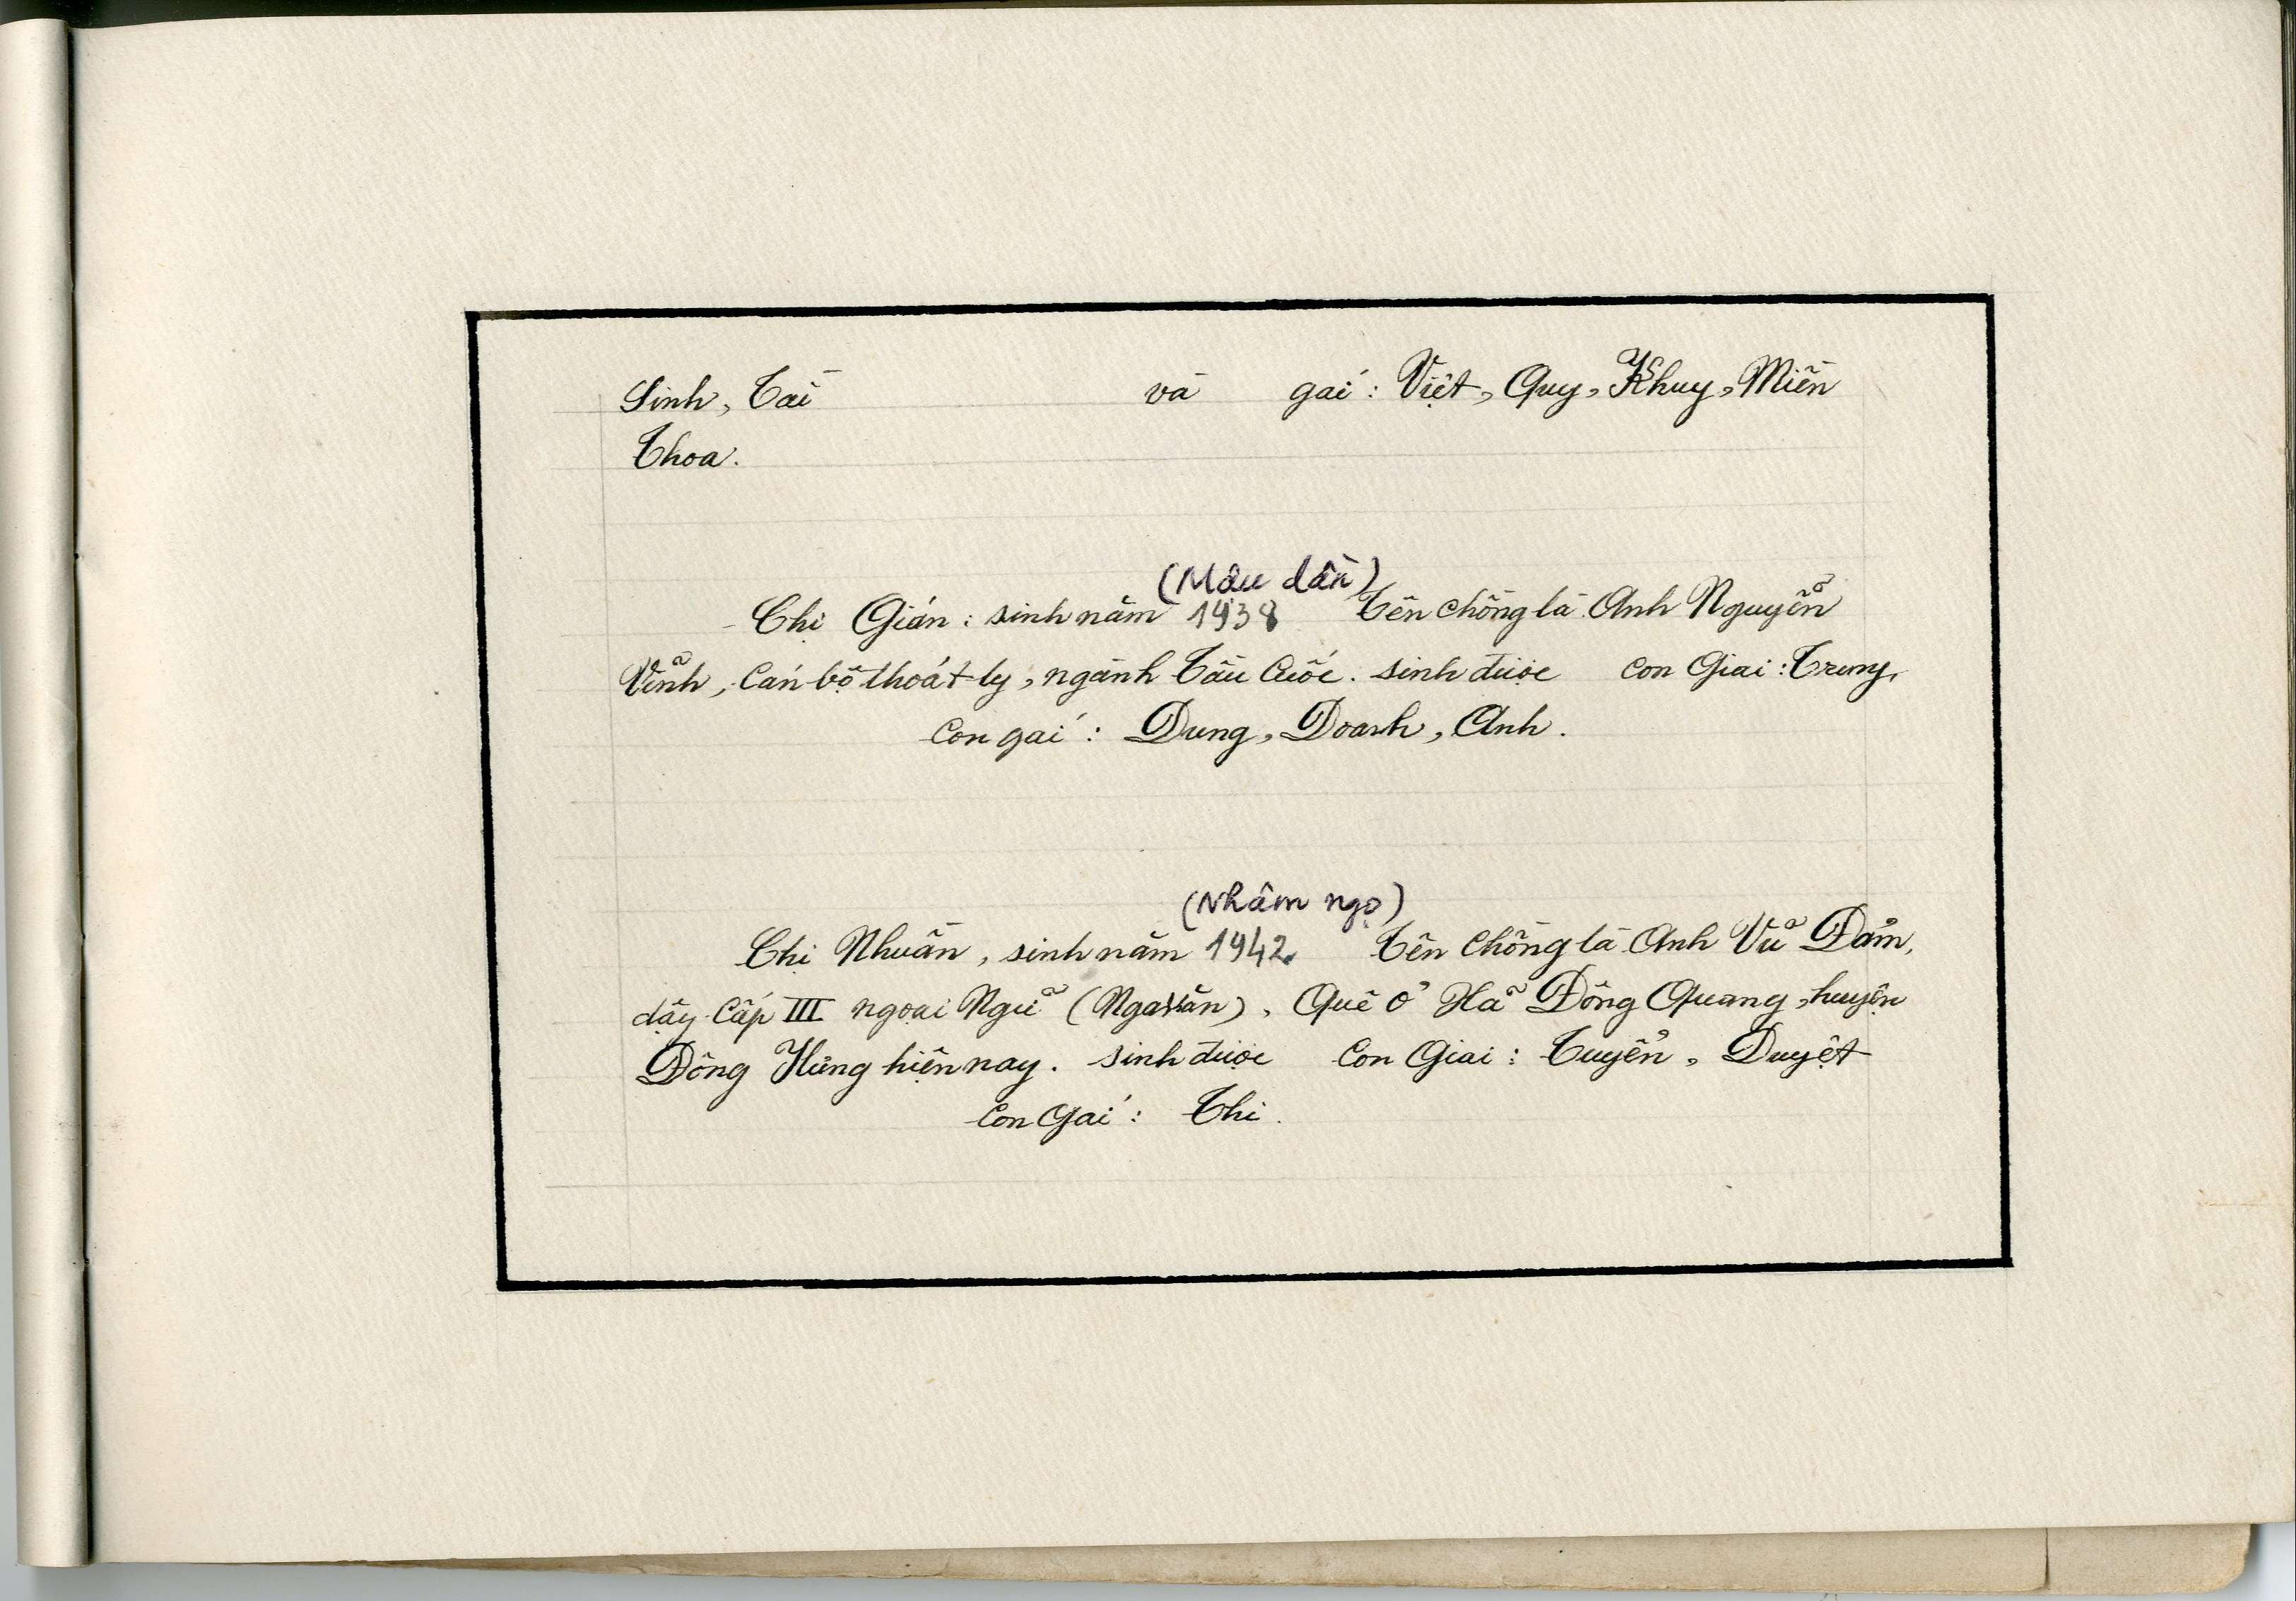 Sinh, Tài và gái: Việt, Quy, Khuy, Miền
Thoa.
(Mậu dần)
Chị Gián: sinh năm 1938 Tên chồng là Anh Nguyễn
Vĩnh, Cán bộ thoát ly, ngành Tầu Cuốc. sinh được Con Giai: Trung,
Con gái: Dung, Doanh, Anh.
(Nhâm ngọ)
Chị Nhuần, sinh năm 1942 Tên chồng là Anh Vũ Đảm,
dậy Cấp III ngoại Ngữ (Nga văn), Quê ở Xã Đông Quang, huyện
Đông Hưng hiện nay. sinh được Con Giai: Tuyển, Duyệt
Con Gái: Thi.